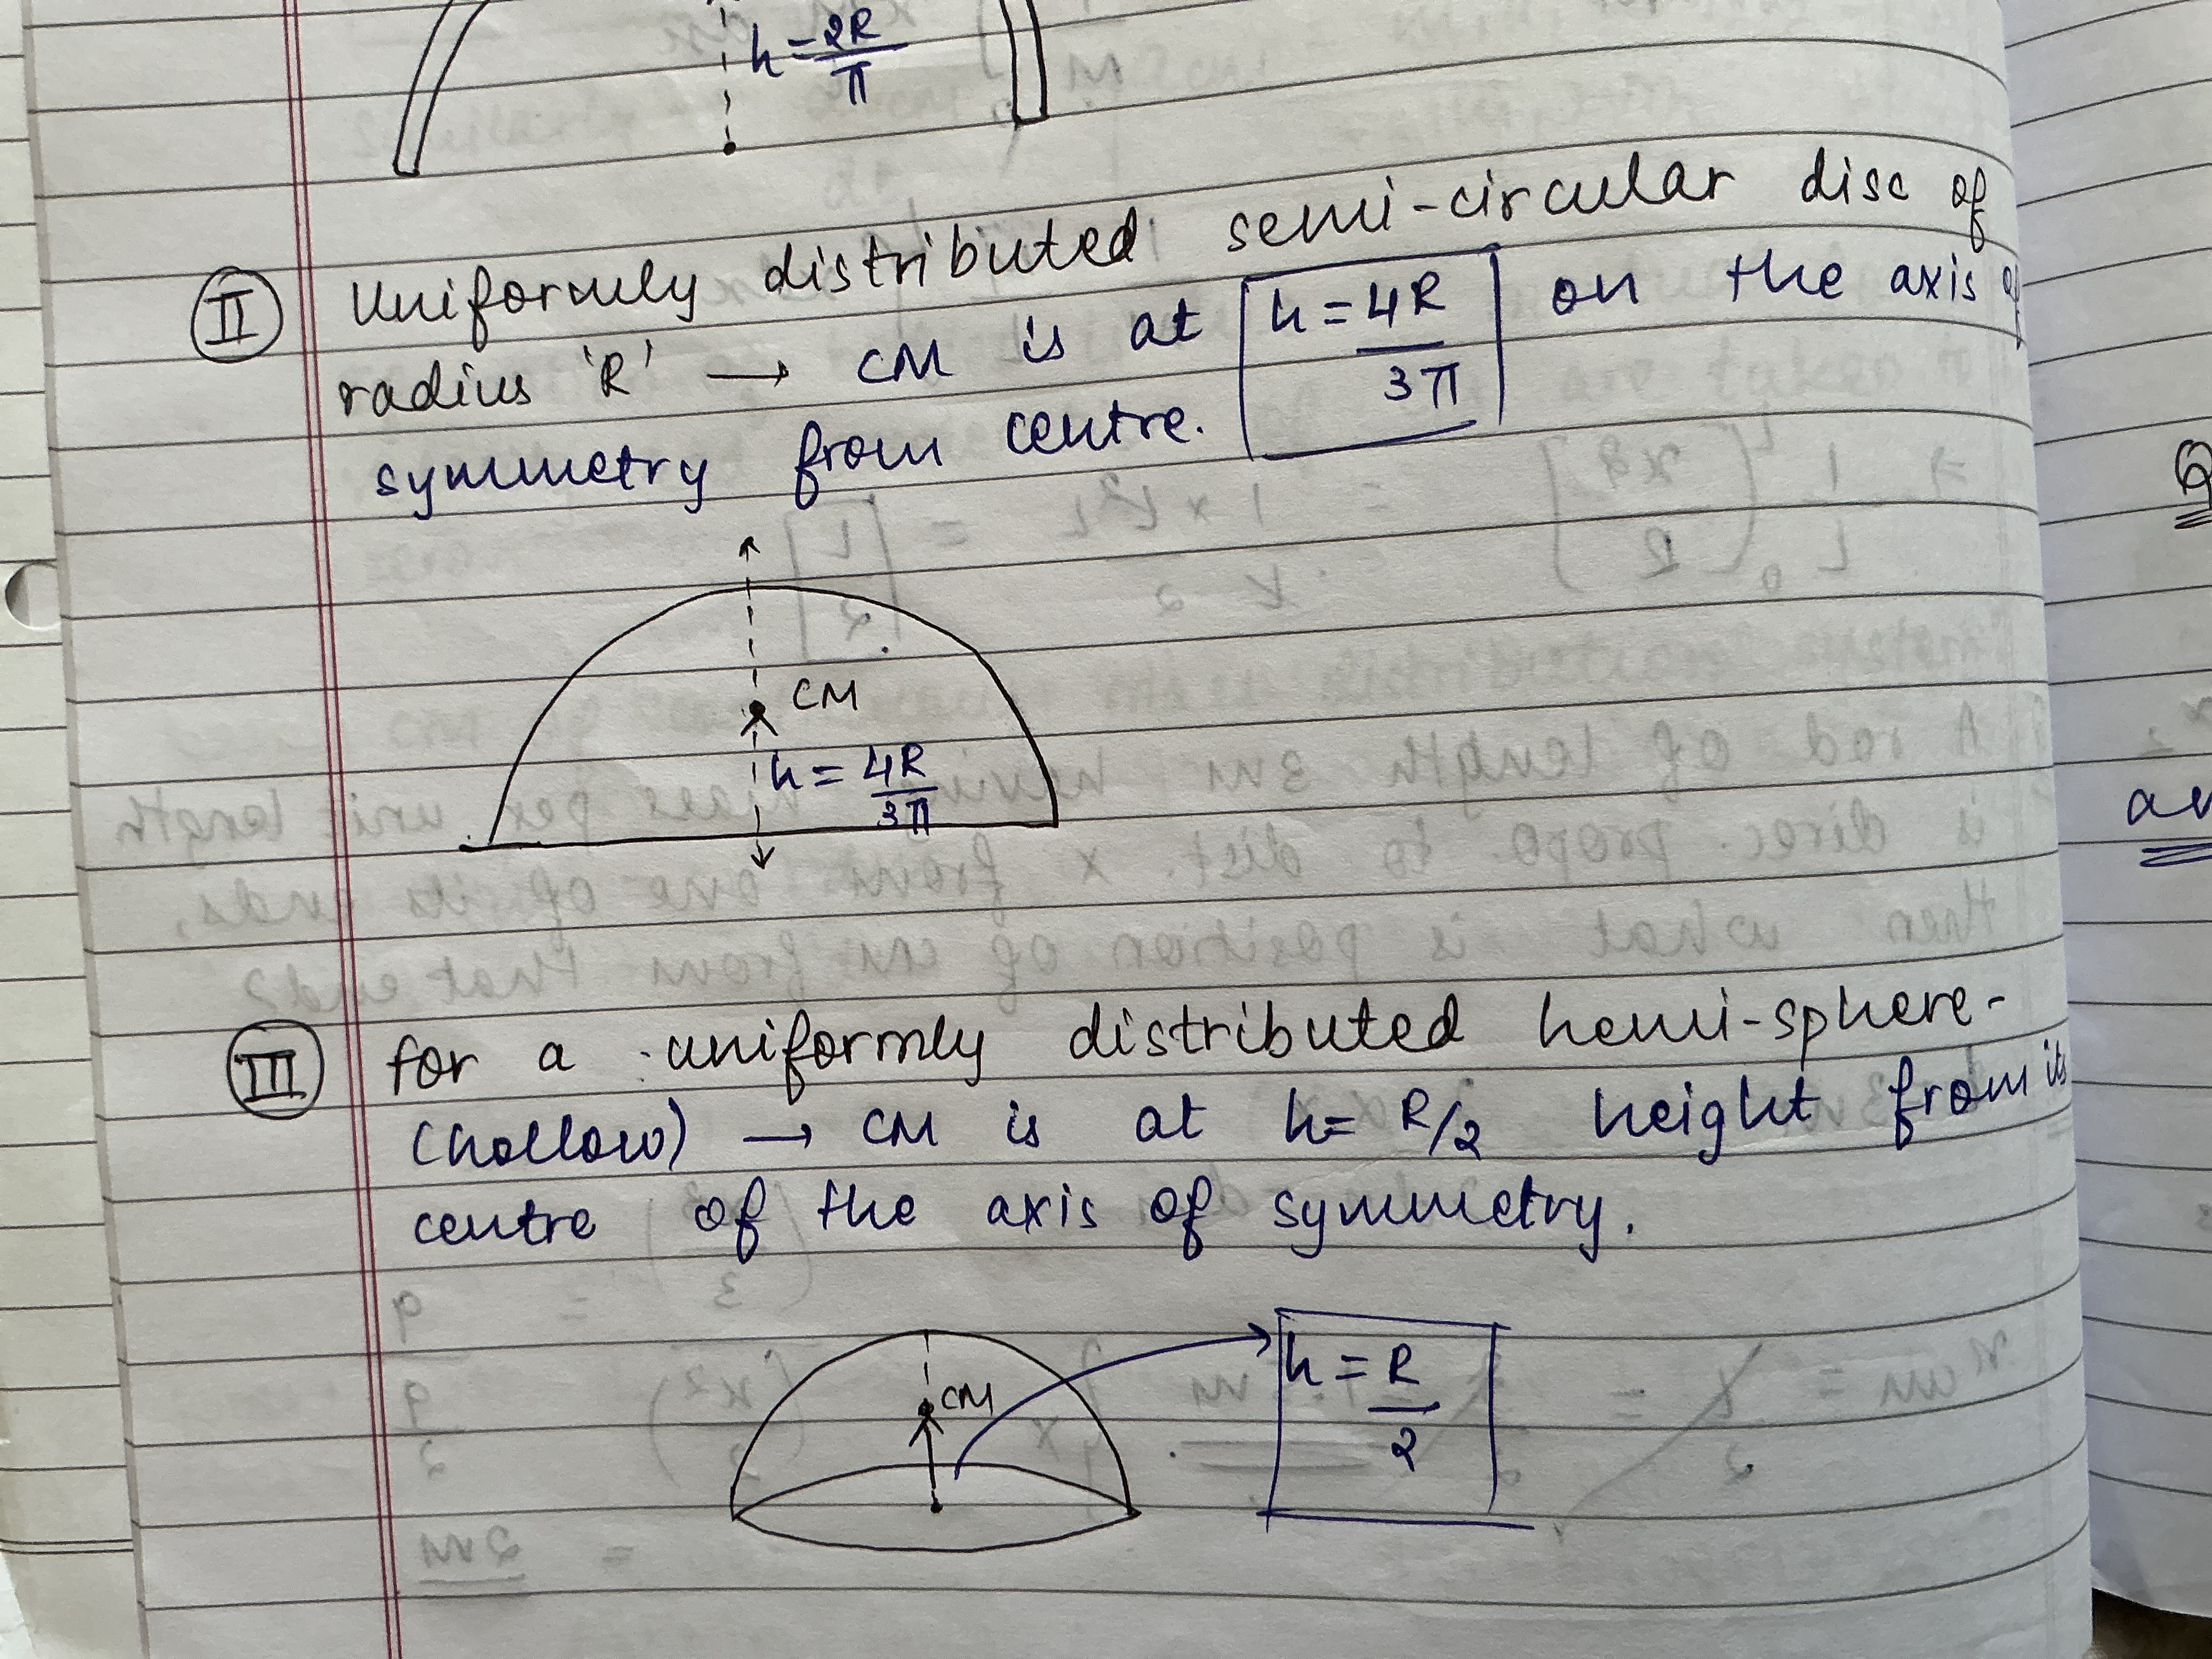 h = 2R/π
II Uniformly distributed semi-circular disc of
radius 'R' → CM is at h = 4R/3π on the axis of
symmetry from centre.
CM
h = 4R/3π
III for a uniformly distributed hemi-sphere-
(hollow) → CM is at h = R/2 height from its
centre of the axis of symmetry.
CM
h = R/2
Q
an